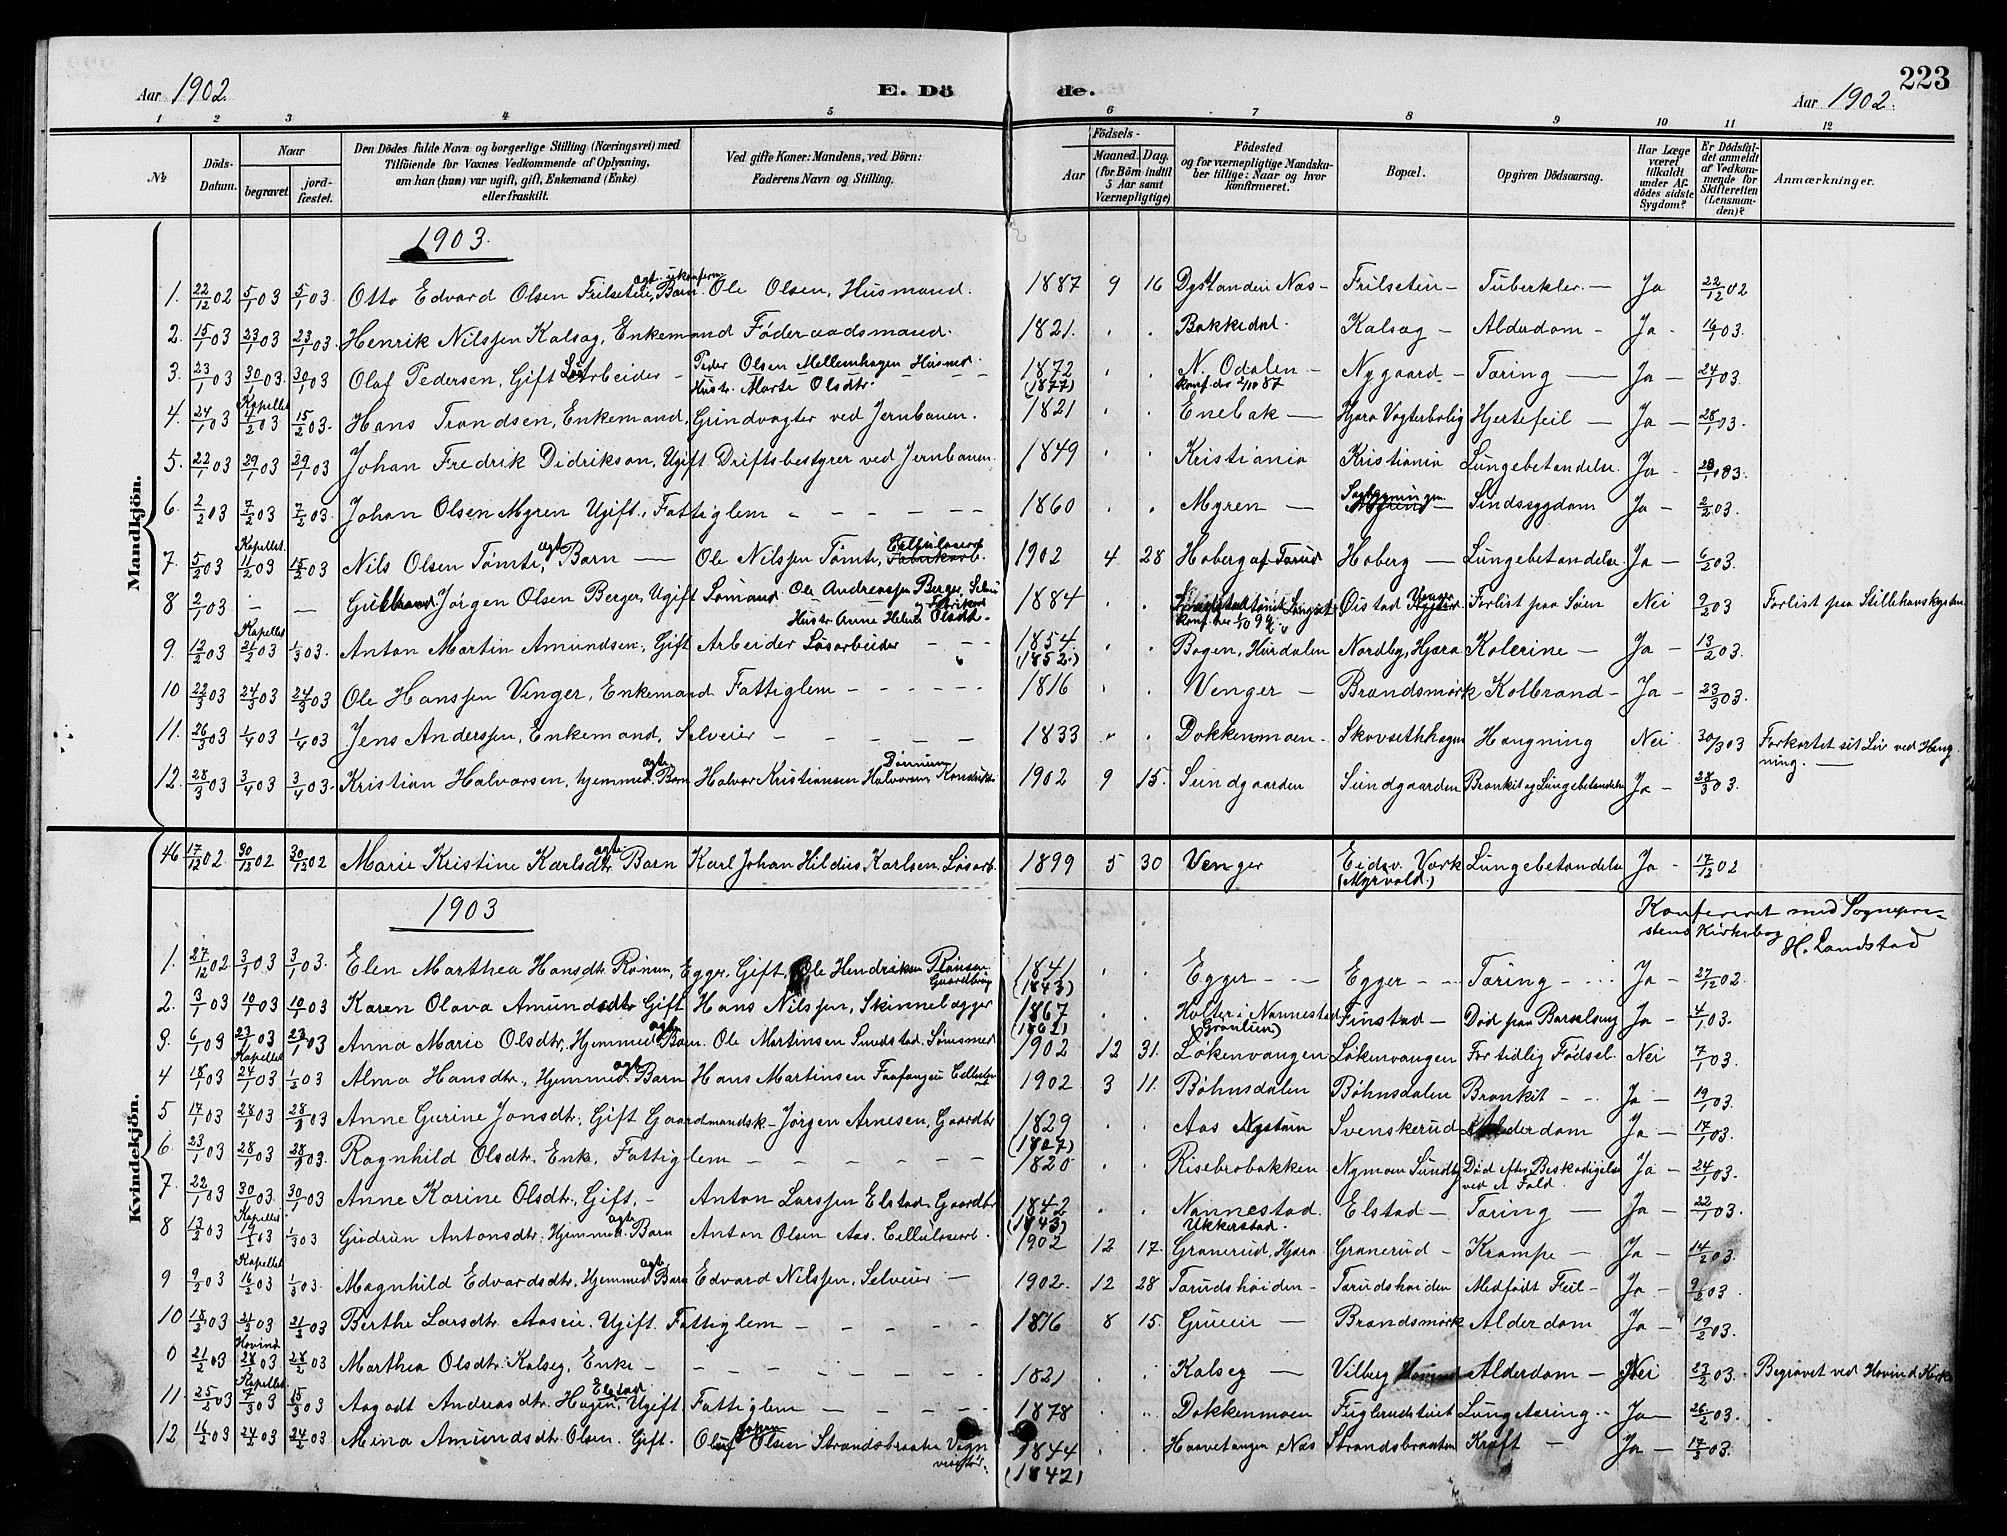 223
Aar 1902.
E. Döde.
Aar 1902.
1 2 3 4 5 6 7 8 9 10 11 12
No
Döds-Datum.
Naar
begravet.
jordfæstet.
Den Dödes fulde Navn og borgerlige Stilling (Næringsvei) med Tilföiende for Voxnes Vedkommende af Oplysning, om han (hun) var ugift, gift, Enkemand (Enke) eller fraskilt.
Ved gifte Koner: Mandens, ved Börn: Faderens Navn og Stilling.
Födsels-
Aar
Maaned. Dag.
(for Börn indtil 5 Aar samt Værnepligtige)
Födested og for værnepligtige Mandskaber tillige: Naar og hvor konfirmeret.
Bopæl.
Opgiven Dödsaarsag.
Har Læge været tilkaldt under Afdödes sidste Sygdom?
Er Dödsfaldet anmeldt af Vedkommende for Skifteretten (Lensmanden)?
Anmærkninger.
Mandkjön.
1903.
1. 22/12 02 5/1 03 5/1 03. Otto Edvard Olsen Frilsetien, ægt. Barn. Ole Olsen, Husmand. 1887 9 16 Dystanden Næs - Frilsetien - Tuberkler. - Ja 22/12 02
2. 15/1 03 23/1 03 23/1 03. Henrik Nilssen Kalsæg, Enkemand Føderaadsmand. 1821. Bakkedal. Kalsæg - Alderdom - Ja - 16/1 03.
3. 23/1 03 30/1 03. 30/1 03 Olaf Pedersen, Gift Løsarbeider - Peder Olsen Mellemhagen Husmd. Hustr. Marte Olsdtr. 1872 (1877) N. Odalen - Nygaard - Tæring - Ja - 24/1 03.
4. 24/1 03 Kapellet 4/2 03 15/2 03. Hans Trondsen, Enkemand, Grindvogter ved Jernbanen. 1821 Enebak - Hjæra Vogterbolig Hjertefeil - Ja - 28/1 03.
5. 22/1 03 29/1 03 29/1 03 Johan Fredrik Didrikson, Ugift Driftsbestyrer ved Jernbanen. 1849 Kristiania Kristiania Lungebetændelse. Ja - 03.
6. 2/2 03 7/2 03 7/2 03. Johan Olsen Myren Ugift, Fattiglem - - - - - 1860 Myren - Sindssygdom Ja - 2/2 03.
7. 5/2 03 Kapellet. 11/2 03 15/2 03 Nils Olsen Tømte, ægt Barn - Ole Nilssen Tømte, 1902 4 28 Hoberg af Tærud Hoberg - Lungebetændelse Ja - 6/2 03.
8 2/2 03 - - Jørgen Olsen Berger, Ugift Sømand Ole Andreassen Berger, Hustr. Anne Helene Olsdtr. 1884 Øistad Forlist paa Søen Nei 9/2 03 Forlist paa Stillehavskysten
9. 12/2 03 Kapellet 21/2 03 1/3 03. Anton Martin Amundsen, Gift Arbeider Løsarbeider - - - 1854. (1852.) Bogen, Hurdalen Nordby, Hjæra Kolerine - Ja - 13/2 03.
10 22/3 03 24/3 03 24/3 03 Ole Hanssen Venger, Enkemand Fattiglem - - - - - 1816 Venger - Brandsmørk Kolbrand - Ja - 23/3 03.
11. 26/3 03 1/4 03 1/4 03 Jens Anderssen, Enkemand, Selveier - - - - - 1833 Dokkenmoen - Skovsethhagen Hængning Nei 30/3 03 Forkortet sit Liv ved Hængning. -
12. 28/3 03 3/4 03 3/4 03. Kristian Halvorsen, hjemmed. ægte Barn Halvor Kristiansen Halvorsen 1902 9 15. Sundgaarden Sundgaarden Bronkit og Lungebetændelse Ja - 28/3 03.
Kvindekjön.
46 17/12 02 30/12 02 30/12 02 Marie Kristine Karlsdtr ægte Barn Karl Johan Hildus Karlsen Løsarb. 1899 5 30 Venger Eidsv. Værk (Myrvold.) Lungebetændelse Ja - 17/12 02
1903
Konfereret med Sogneprestens Kirkebog
H. Landstad
1. 27/12 02 3/1 03 3/1 03. Elen Marthea Hansdtr. Rønsen, Egger, Gift, Ole Hendriksen Rønsen 1841 (1843) Egger - - - Egger - - Tæring - Ja - 27/12 02.
2. 3/1 03 10/1 03 10/1 03 Karen Olava Amundsdtr Gift Hans Nilssen, Skinnelægger 1867 Holter i Nannestad Finstad - Død paa Barselseng Ja - 4/1 03.
3. 6/1 03 23/1 03 23/1 03 Anna Marie Olsdtr, Hjemmed. ægte Barn. Ole Martinsen Sundstad 1902 12 31. Løkenvangen Løkenvangen For tidlig Fødsel. Nei 7/1 03.
4 18/1 03 Kapellet 24/1 03 1/2 03 Alma Hansdtr, Hjemmed. ægt Barn Hans Martinsen 1902 3 11. Bøhnsdalen Bøhnsdalen Bronkit - - Ja - 19/1 03.
5 17/1 03 28/1 03 28/1 03 Anne Gurine Jonsdtr, Gift Gaardmandsk. - Jørgen Arnesen, Gaardbr 1829 (1827) Aas Nystuen Svenskerud Alderdom Ja - 17/1 03.
6. 23/1 03 28/1 03 28/1 03. Ragnhild Olsdtr. Enk. Fattiglem - - - - - 1820 Risebrobakken Nymoen Sundby Død efter Beskadigelse ved et Fald. Ja - 24/1 03.
7. 22/1 03 30/1 03. 30/1 03 Anne Karine Olsdtr, Gift, - Anton Larssen Elstad Gaardbr 1842 (1843) Nannestad. Ukkerstad. Elstad - Tæring - Ja - 22/1 03.
8 13/2 03 Kapellet 19/2 03 1/3 03 Gudrun Antonsdtr, Hjemmed. ægte Barn Anton Olsen Aas. Cellulosearb. 1902 12 17. Granerud, Hjæra Granerud - Krampe - Ja - 14/2 03.
9 9/2 03 Kapellet 16/2 03 1/3 03. Magnhild Edvardsdtr, Hjemmed. ægte Barn Edvard Nilssen, Selveier - 1902. 12 28 Tærudshøiden - Tærudshøiden Medfødt Feil - Ja - 9/2 03.
10 18/2 03 21/2 03 21/2 03 Berthe Larsdtr Aaseie. Ugift. Fattiglem - - - - - 8 15. Grueeie - Brandsmørk Alderdom Ja - 19/2 03.
0 21/2 03 Hovind 28/2 03 28/2 03 Marthea Olsdtr. Kalseg, Enke - - - - - 1821 Kalseg - Vilberg Hovind Alderdom - Nei 23/2 03. Begravet ved Hovind Kirke
11. 25/2 03 Kapellet 7/3 03 15/3 03 Aagodt Andreasdtr. Hagen, Elstad Ugift. Fattiglem - - - - - 1878 Dokkenmoen Fuglerudstuet Lungetæring - Ja - 26/2 03.
12 16/2 03 24/2 03 24/2 03. Mina Amundsdtr. Olsen. Gift. Oluf Johan Olsen Strandsbraaten 1844 (1842) Haavetangen Næs Strandsbraaten Kræft - Ja - 17/2 03.